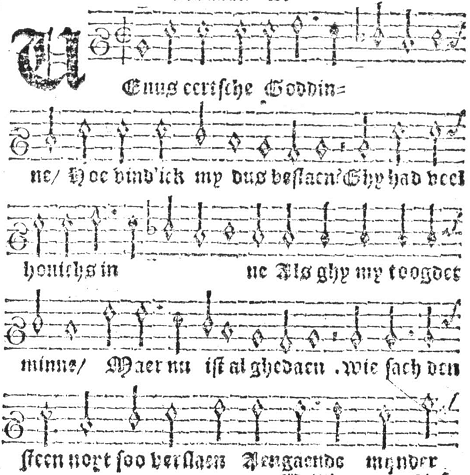 VEnus eertsche Goddin=
ne/ Hoe vind'ick my dus bestaen? Ghy had veel
honichs in ne Als ghy my toogdet
minne/ Maer nu ist al ghedaen . wie sach den
steen noyt soo verslaen Aengaende mynder